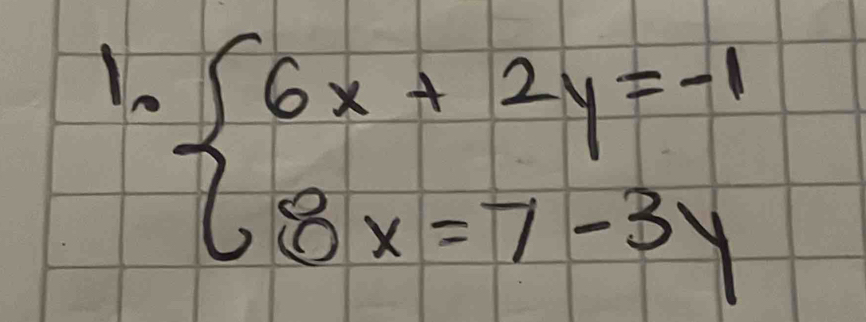 1. { 6x + 2y = -1
8x = 7 - 3y